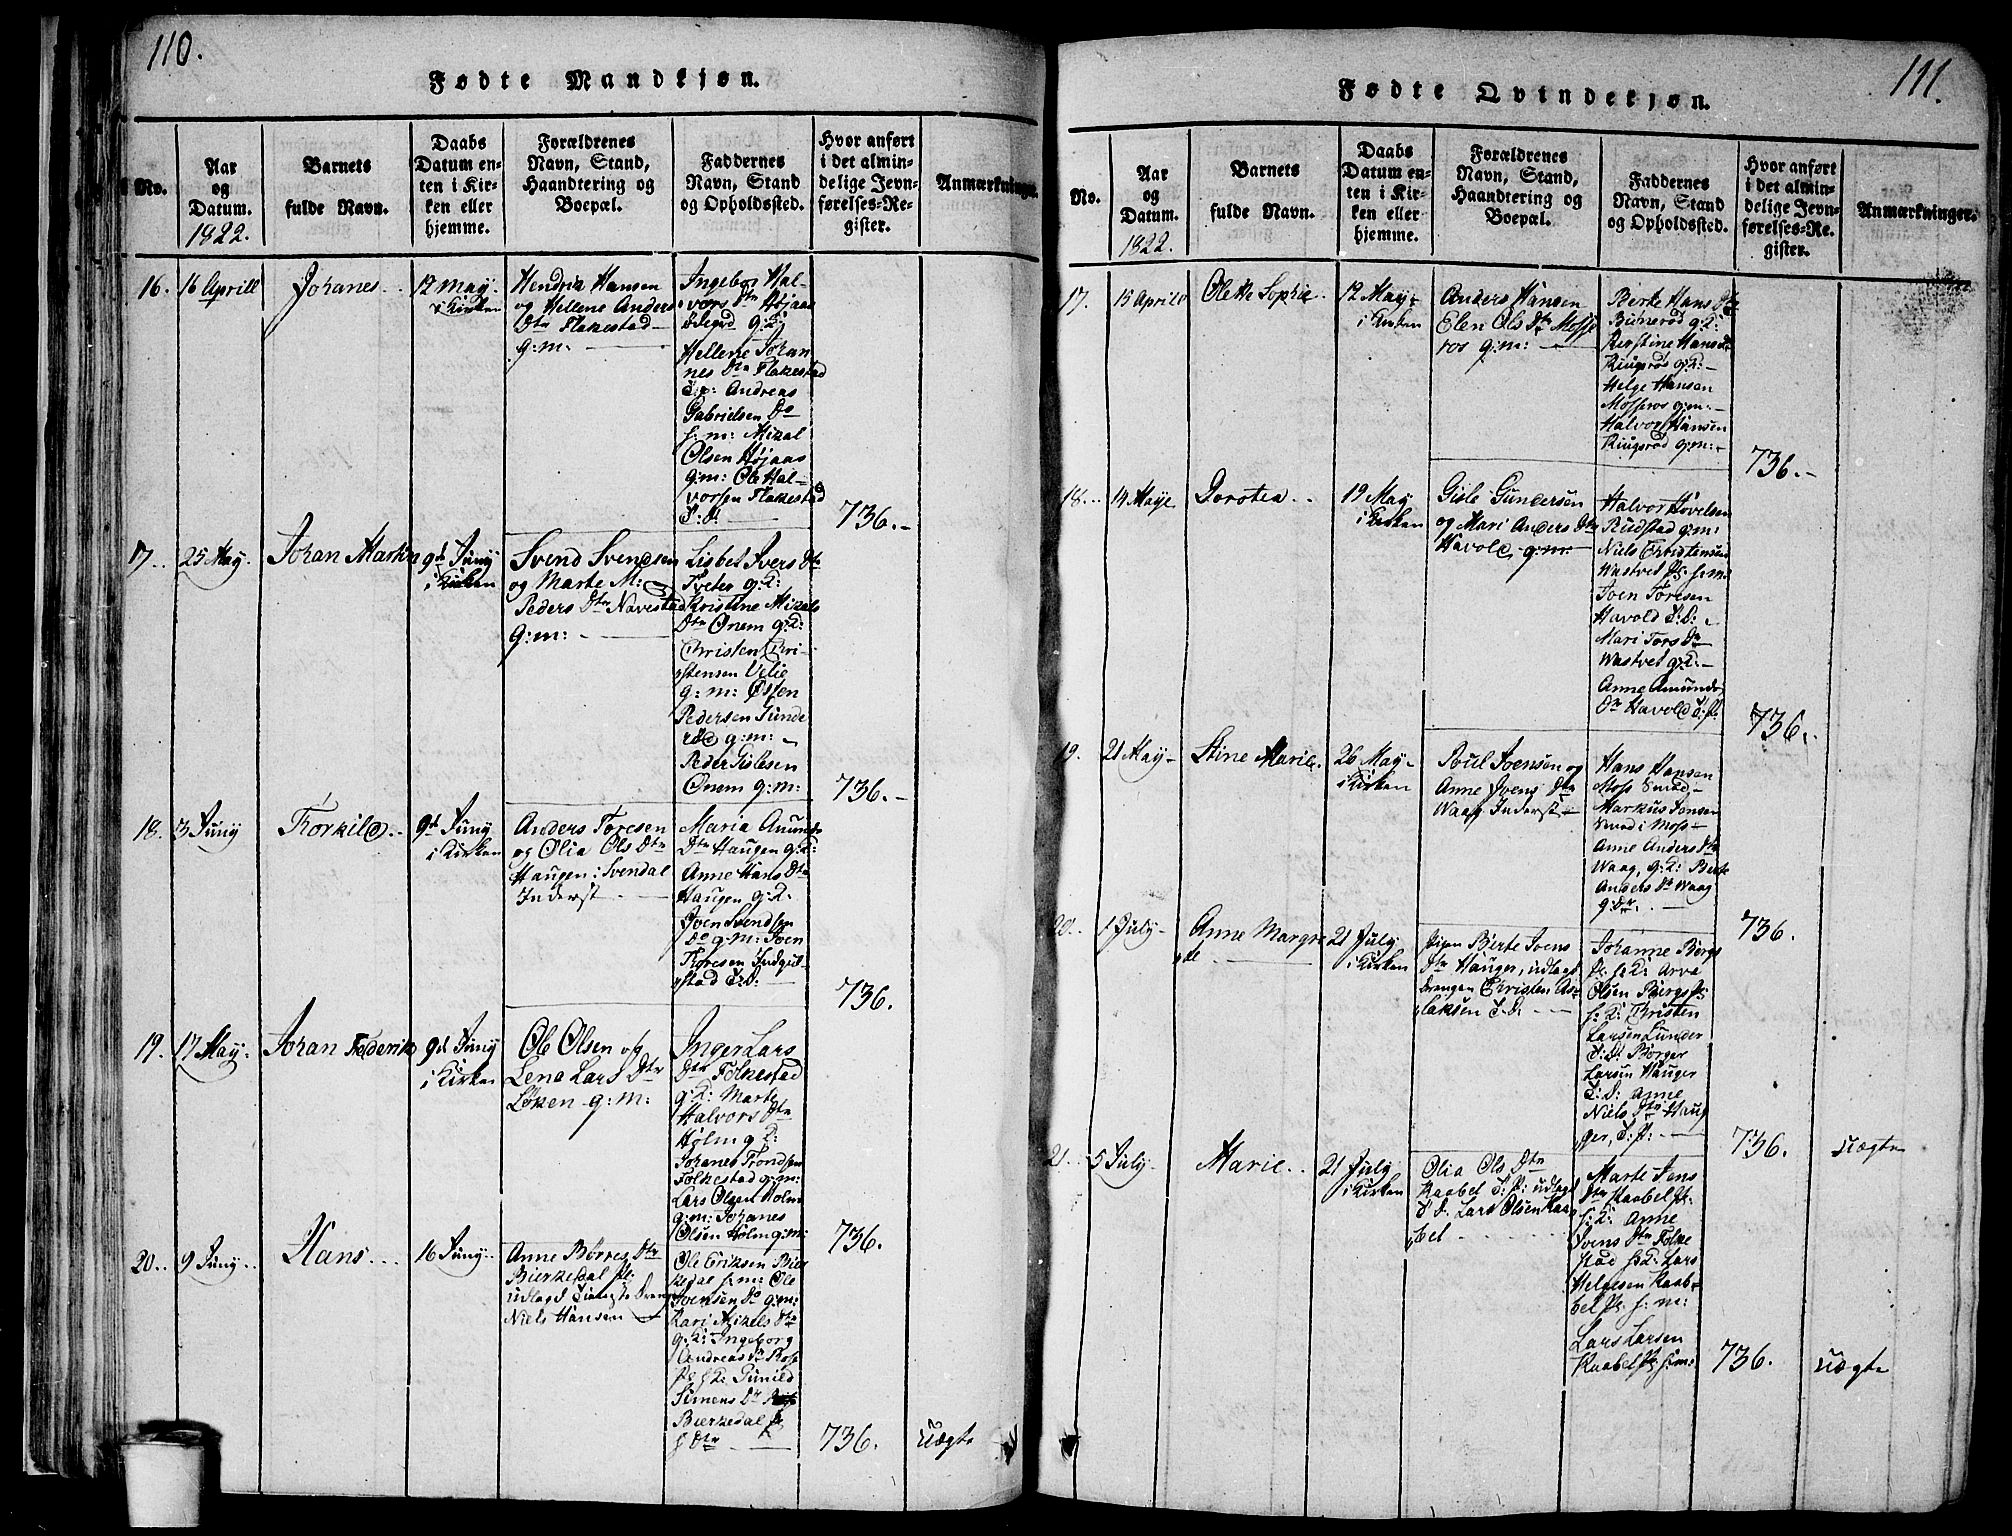 110.
Fødte Mandkjøn.
No.
Aar
og
Datum.
1822.
Barnets
fulde Navn.
Daabs
Datum en-
ten i Kir-
ken eller
hjemme.
Forældrenes
Navn, Stand,
Haandtering og
Boepæl.
Faddernes
Navn, Stand
og Opholdssted.
Hvor anført
i det almin-
delige Jevn-
førelses-Re-
gister.
Anmærkninger.
16. 16 Aprill
Johanes
12 May
i Kirken
Hendrik Hansen
og Hellene Anders
Dtr Flakestad
g:m:
Ingeborg Hal-
vors Dtr Højaas
g:K:
Hellene Johan
nes Dtr Flakestad
T:p: Andreas
Gabrielsen Do
f:m: Mikal
Olsen Højaas
g:m: Ole Hal-
vorsen Flakestad
T:D:
736.
17. 25 May
Johan Martin
9d Juny
i Kirken
Svend Svendsen
og Marte M:
Peders Dtr Navestad
g:m:
Lisbet Ivers Dtr
Tveter g:K:
Kristine Mikals
Dtr Onem g:K:
Christen Chri-
stensen Velie
g:m: Østen
Pedersen Tunde
rød g:m:
Peder Gislesen
Onem g:m:
736.
18. 3 Juny
Torkild
9d Juny
i Kirken
Anders Toresen
og Olia Ols Dtr
Haugen i Svendal
Inderst
Maria Amunds
Dtr Haugen g:K:
Anne Hans Dtr
Haugen g:K:
Joen Svendsen
do g:m: Joen
Toresen Indgul-
stad T:D:
736.
19. 17 May
Johan Frederik
9d Juny
i Kirken
Ole Olsen og
Lena Lars Dtr
Løken g:m:
Inger Lars
Dtr Folkestad
g:K: Marte
Halvors Dtr
Holm g:K:
Johanes Trondsen
Folkestad g:m:
Lars Olsen Holm
g:m: Johanes
Olsen Holm g:m:
736.
20. 9 Juny
Hans
16 Juny
Anne Børres Dtr
Bierkedal P:
udlagd Tieneste Dreng
Niels Hansen
Ole Eriksen Bier
kedal f:m: Ole
Ivensen Do g:m:
Kari Mikels Dtr
g:K: Ingeborg
Andreas Dr
Gunild
Simens Dr
Bierkedal
736.
uægte
111.
Fødte Qvindekjøn.
No.
Aar
og
Datum.
1822.
Barnets
fulde Navn.
Daabs
Datum en-
ten i Kir-
ken eller
hjemme.
Forældrenes
Navn, Stand,
Haandtering og
Boepæl.
Faddernes
Navn, Stand
og Opholdssted.
Hvor anført
i det almin-
delige Jevn-
førelses-Re-
gister.
Anmærkninger.
17. 15 Aprill
Olette Sophie
12 May
i Kirken
Anders Hansen
Elen Ols Dtr Mosse
ros g:m:
Berte Hans Dtr
Bierrød g:K:
Kerstine Hans Dr
Ringsrøs g:K:
Helge Hansen
Mosseros g:m:
Halvor Hansen
Ringsrød g:m:
736.
18. 14 Maye
Dorotea
19 May
i Kirken
Gisle Gundersen
og Mari Anders Dtr
Havold g:m:
Halvor Hovelsen
Rudstad g:m:
Niels Christensen
Wastvet P: f:m:
Joen Toresen
Havold T:D:
Mari Tors Dr
Wastvet g:K:
Anne Amunds
Dr Havold T:P:
736.
19. 21 May
Stine Marie
26 May
i Kirken
Poul Ivensen og
Anne Ivens Dtr
Waag Inderst
Hans Hansen
Moss Smed
Markus Jensen
Smed i Moss
Anne Anders Dtr
Waag, g:K: Berte
Anders Dtr Waag
g:Dr:
736.
20. 1 July
Anne Margre
te
21 July
i Kirken
Pigen Berte Ivens
Dtr Hauger, udlagd
Drengen Christen As-
laksen T:D:
Johanne Bergs
P: f:K: Arve
Olsen Bergs P:
f:K: Christen
Larsen Lunder
T:D: Børger
Larsen Hauger
T:D: Anne
Niels Dtr Haug
ger, T:P:
736.
uægte
21. 5 July
Marie
21 July
i Kirken
Olia Ols Dtr
Kaabel T:P: udlagd
Lars Olsen Kaa
bel
Marte Jens
Dtr Kaabel P:
f:K: Anne
Ivens Dtr Folke
stad f:K: Lars
Helgesen Kaab
bel P: f:m:
Lars Larsen
Kaabel P: f:m:
736.
uægte